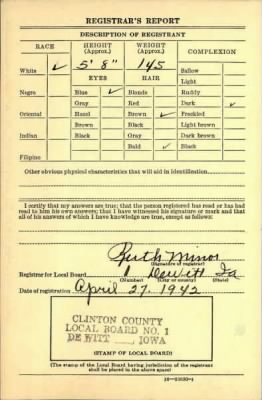 REGISTRAR'S REPORT
DESCRIPTION OF REGISTRANT
RACE HEIGHT (Approx.) WEIGHT (Approx.) COMPLEXION
White ✓ 5' 8" 145 Sallow
EYES HAIR Light
Negro Blue ✓ Blonde Ruddy
Gray Red Dark ✓
Oriental Hazel Brown ✓ Freckled
Brown Black Light brown
Indian Black Gray Dark brown
Bald ✓ Black
Filipino
Other obvious physical characteristics that will aid in identification
I certify that my answers are true; that the person registered has read or has had
read to him his own answers; that I have witnessed his signature or mark and that
all of his answers of which I have knowledge are true, except as follows:
Ruth Minor
(Signature of registrar)
Registrar for Local Board 1 Dewitt Ia
(Number) (City or county) (State)
Date of registration April 27, 1942
CLINTON COUNTY
LOCAL BOARD NO. 1
DE WITT IOWA
(STAMP OF LOCAL BOARD)
(The stamp of the Local Board having jurisdiction of the registrant
shall be placed in the above space)